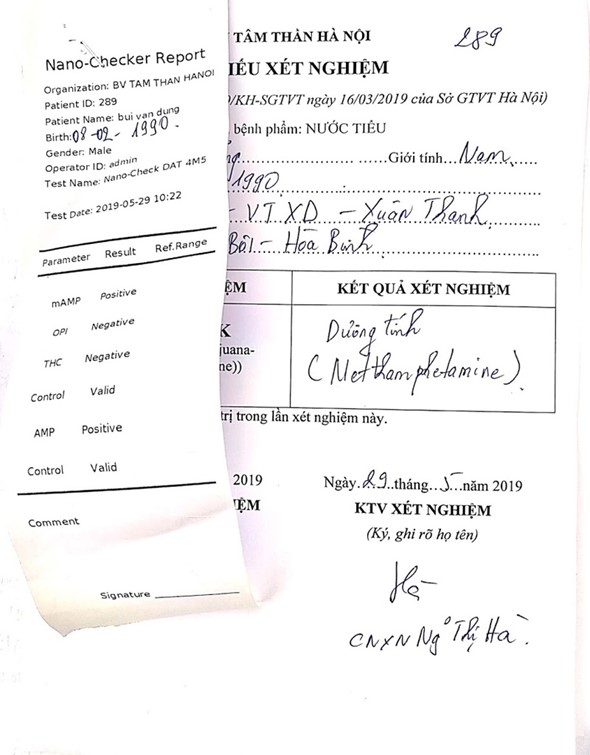 Nano-Checker Report
Organization: BV TAM THAN HANOI
Patient ID: 289
Patient Name: bui van dung
Birth: 08-02-1990.
Gender: Male
Operator ID: admin
Test Name: Nano-Check DAT 4M5
Test Date: 2019-05-29 10:22
Parameter Result Ref.Range
mAMP Positive
OPI Negative
THC Negative
Control Valid
AMP Positive
Control Valid
Comment
Signature
TÂM THẦN HÀ NỘI
289
IẾU XÉT NGHIỆM
/KH-SGTVT ngày 16/03/2019 của Sở GTVT Hà Nội)
bệnh phẩm: NƯỚC TIỂU
Giới tính Nam
1990
- VT XD - Xuân Thanh
Bôi - Hòa Bình
ỆM KẾT QUẢ XÉT NGHIỆM
K
juana-
ne))
Dương tính
(Methamphetamine).
trị trong lần xét nghiệm này.
2019
ỆM
Ngày 29 tháng 5 năm 2019
KTV XÉT NGHIỆM
(Ký, ghi rõ họ tên)
Hà
CNXN Ngô Thị Hà.